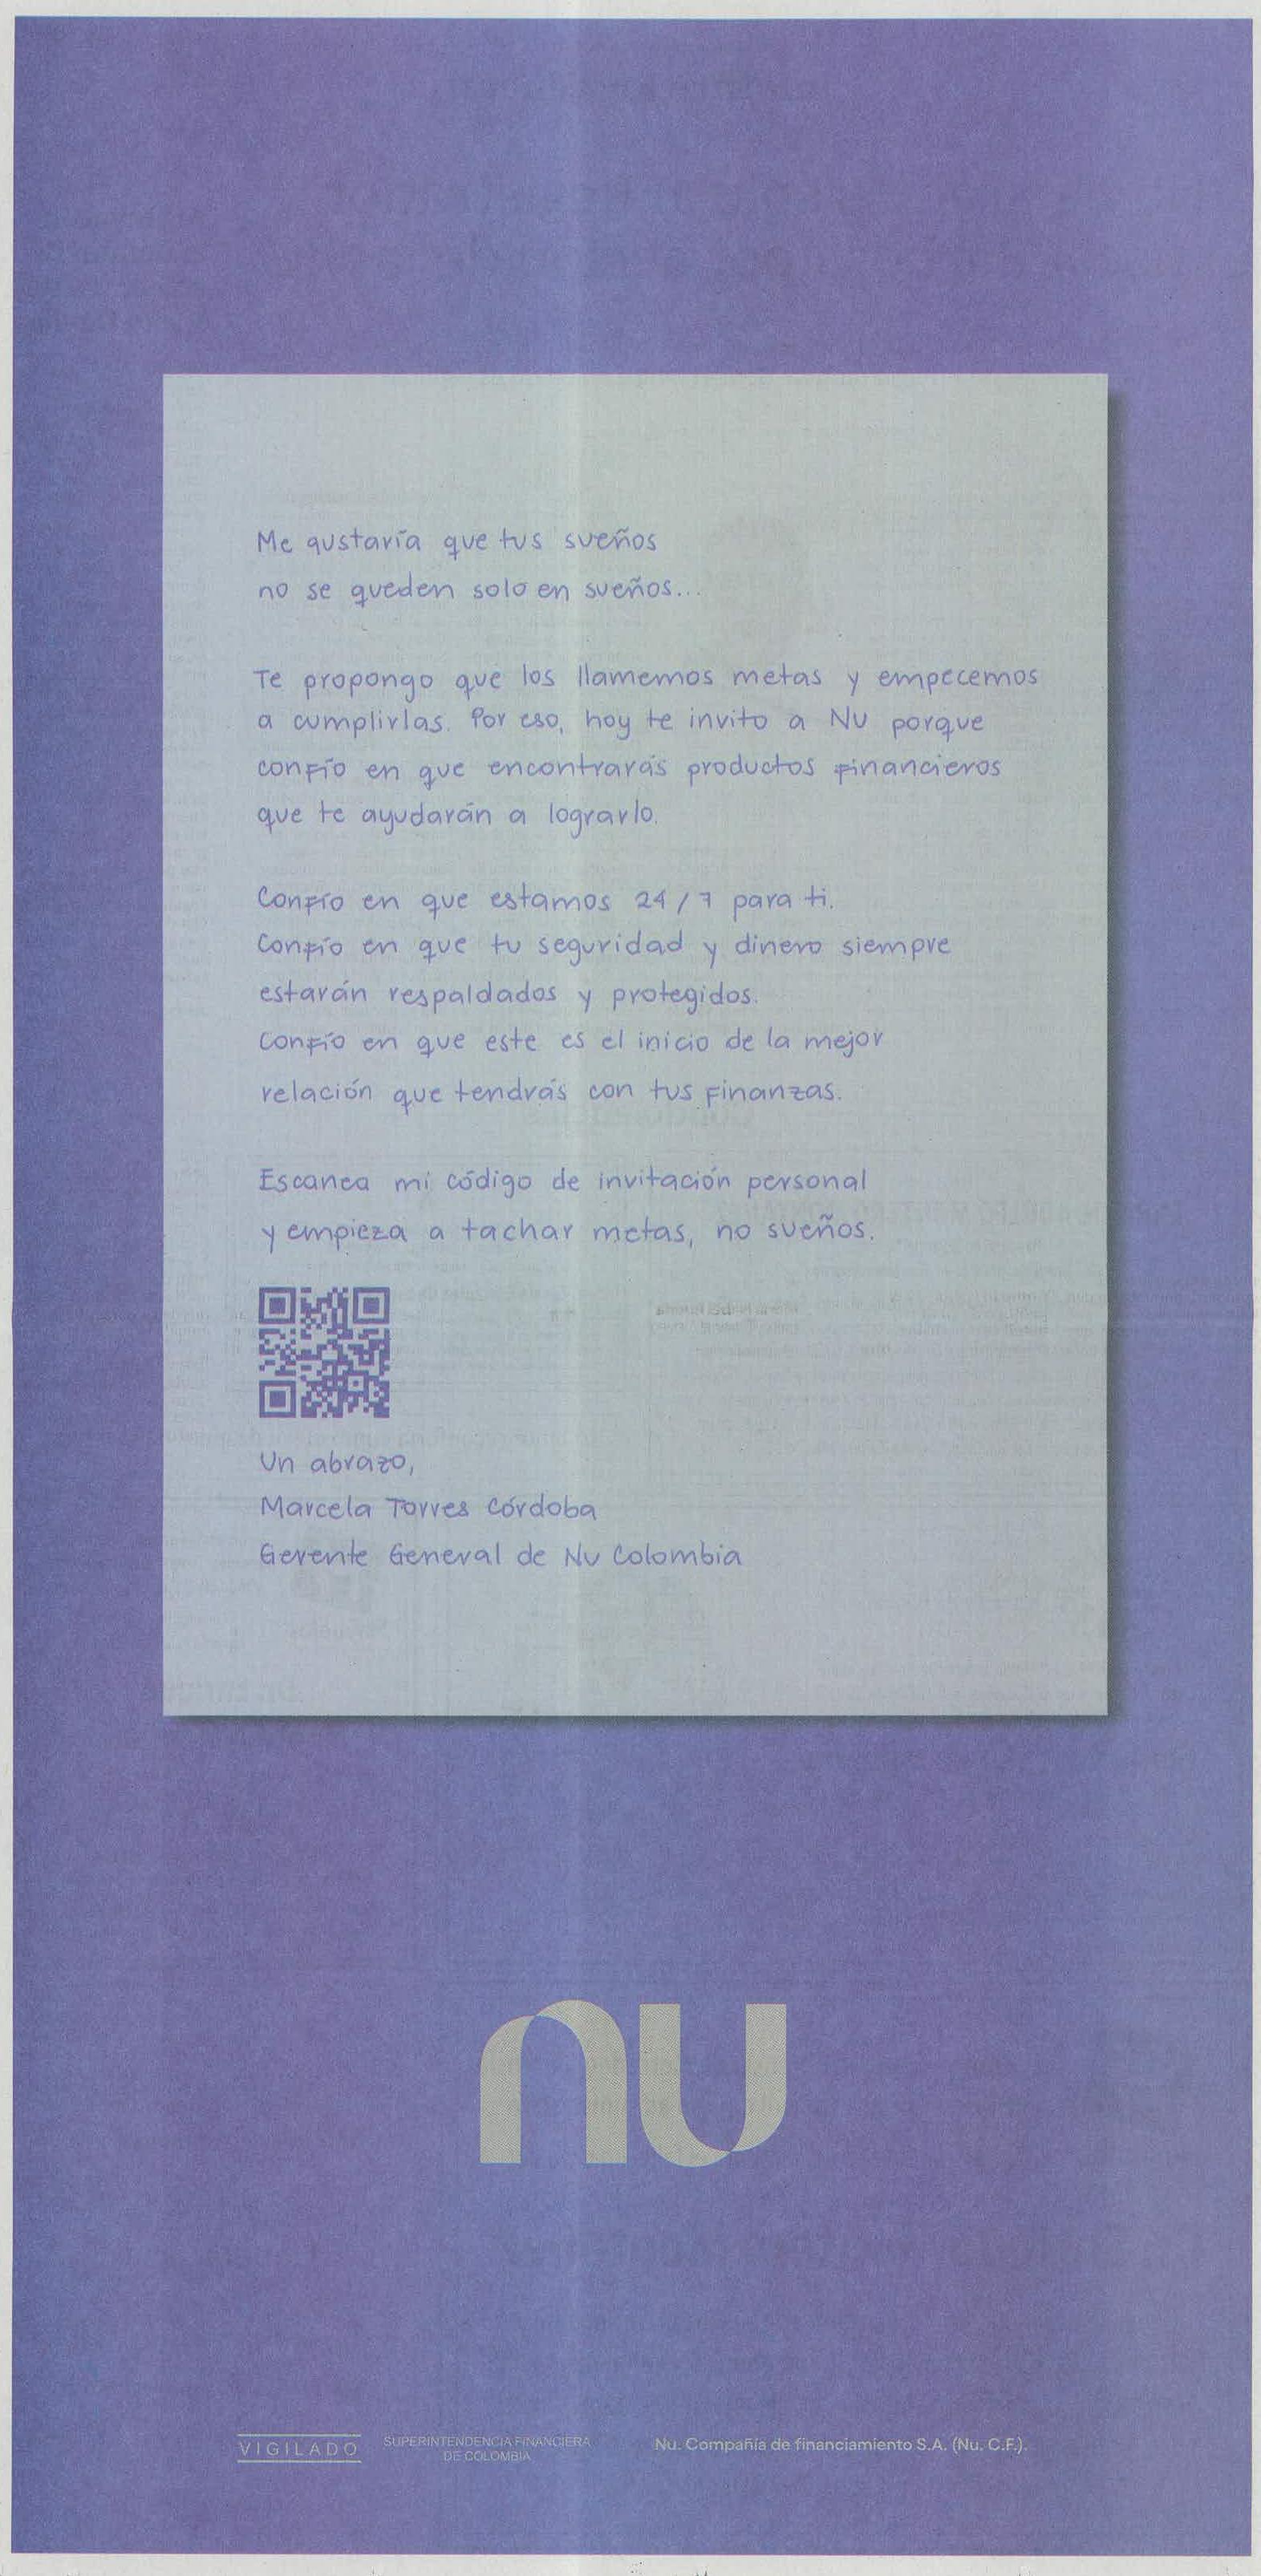 Me gustaría que tus sueños
no se queden solo en sueños...
Te propongo que los llamemos metas y empecemos
a cumplirlas. Por eso, hoy te invito a Nu porque
confío en que encontrarás productos financieros
que te ayudarán a lograrlo.
Confío en que estamos 24/7 para ti.
Confío en que tu seguridad y dinero siempre
estarán respaldados y protegidos.
Confío en que este es el inicio de la mejor
relación que tendrás con tus finanzas.
Escanea mi código de invitación personal
y empieza a tachar metas, no sueños.
Un abrazo,
Marcela Torres Córdoba
Gerente General de Nu Colombia
nu
VIGILADO SUPERINTENDENCIA FINANCIERA
DE COLOMBIA
Nu. Compañía de financiamiento S.A. (Nu. C.F.).